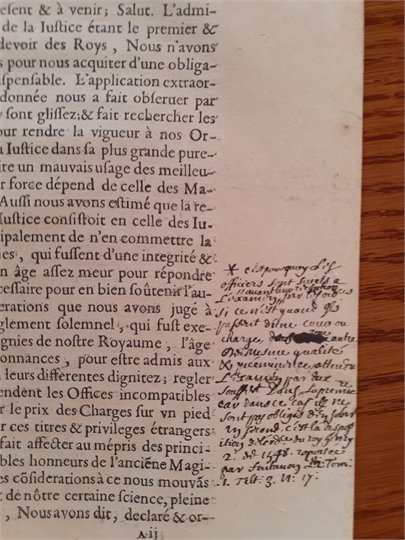 resent & à venir; Salut. L'admi-
de la Iustice étant le premier &
devoir des Roys, Nous n'avons
s pour nous acquiter d'une obliga-
spensable. L'application extraor-
donnée nous a fait obseruer par
y sont glissez; & fait rechercher les
our rendre la vigueur à nos Or-
a Iustice dans sa plus grande pure-
ire un mauvais usage des meilleu-
r force dépend de celle des Ma-
Aussi nous avons estimé que la re-
ustice consistoit en celle des Iu-
ipalement de n'en commettre la
ies, qui fussent d'une integrité &
n âge assez meur pour répondre
cessaire pour en bien soûtenir l'au-
erations que nous avons jugé à
glement solemnel, qui fust exe-
gnies de nostre Royaume, l'âge
onnances, pour estre admis aux
leurs differentes dignitez; regler
endent les Offices incompatibles
er le prix des Charges sur vn pied
er ces titres & privileges étrangers
fait affecter au mépris des princi-
ables honneurs de l'anciéne Magi-
es cósiderations à ce nous mouvãs
t de nôtre certaine science, pleine
, Nous avons dit, declaré & or-
A ij
* c'est pourquoy Les
officiers sont sujets a
L'examen
si ce n'est quand
charge autre
de mesme qualité
L'examen
car dans ce cas ils ne
sont pas obligés
ition de Lordce du roy Henry
2. de 1548. raportée
par fontanon Tom.
1. Tit. 3. N. 17.